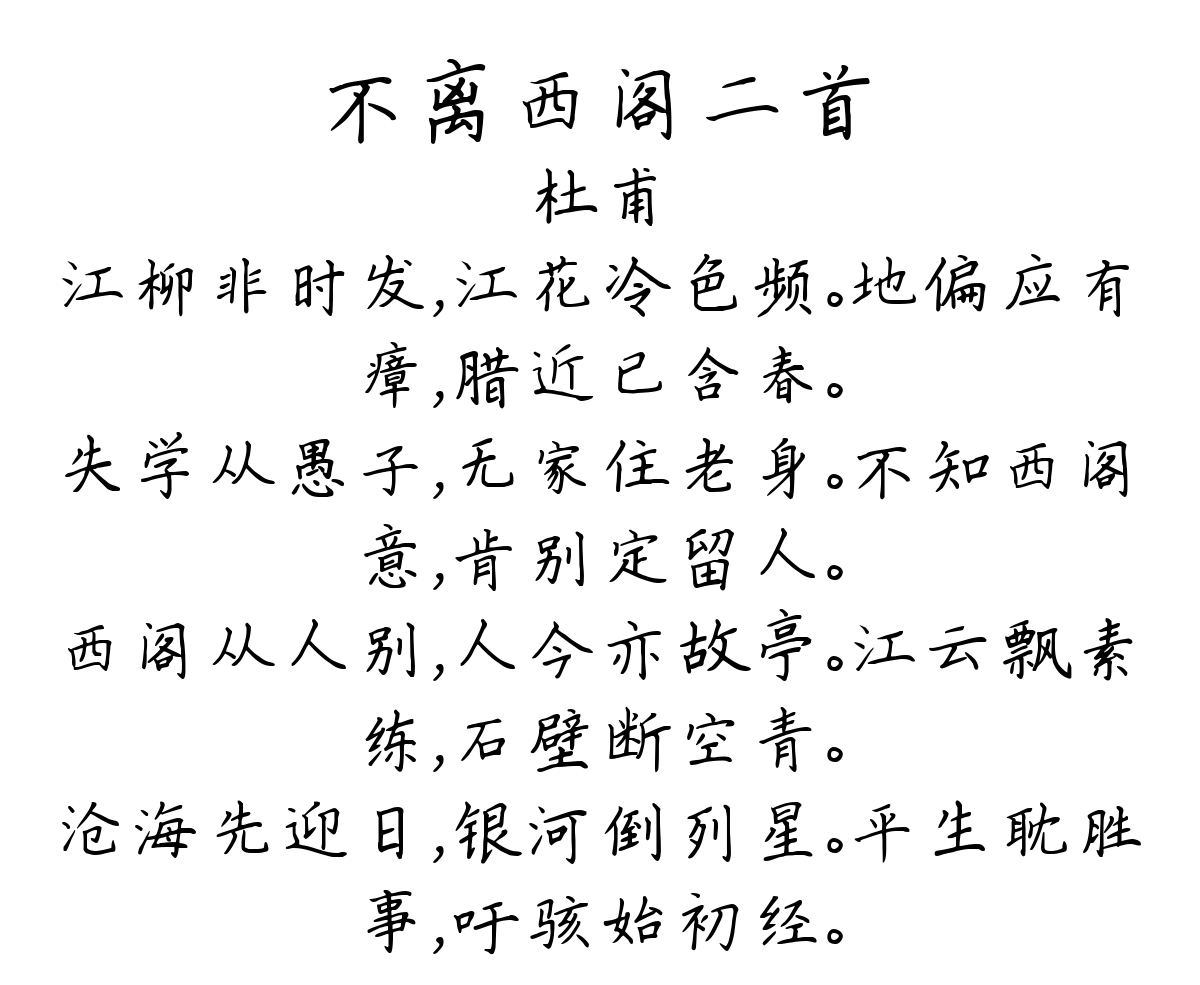 不离西阁二首
杜甫
江柳非时发,江花冷色频。地偏应有
瘴,腊近已含春。
失学从愚子,无家住老身。不知西阁
意,肯别定留人。
西阁从人别,人今亦故亭。江云飘素
练,石壁断空青。
沧海先迎日,银河倒列星。平生耽胜
事,吁骇始初经。